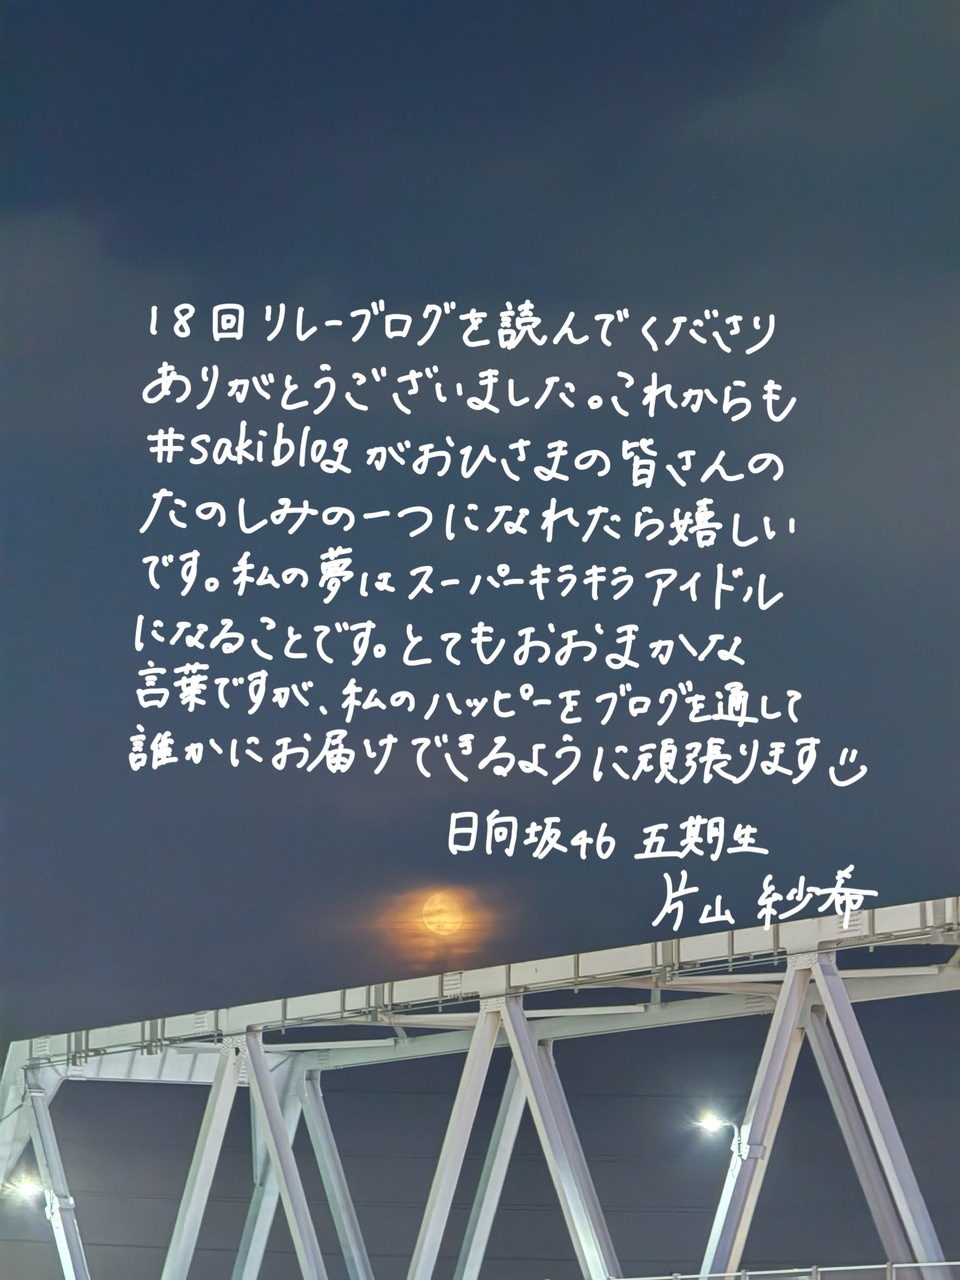 18回リレーブログを読んでくださり
ありがとうございました。これからも
#sakiblogがおひさまの皆さんの
たのしみの一つになれたら嬉しい
です。私の夢はスーパーキラキラアイドル
になることです。とてもおおまかな
言葉ですが、私のハッピーをブログを通して
誰かにお届けできるように頑張ります
日向坂46 五期生
片山 紗希